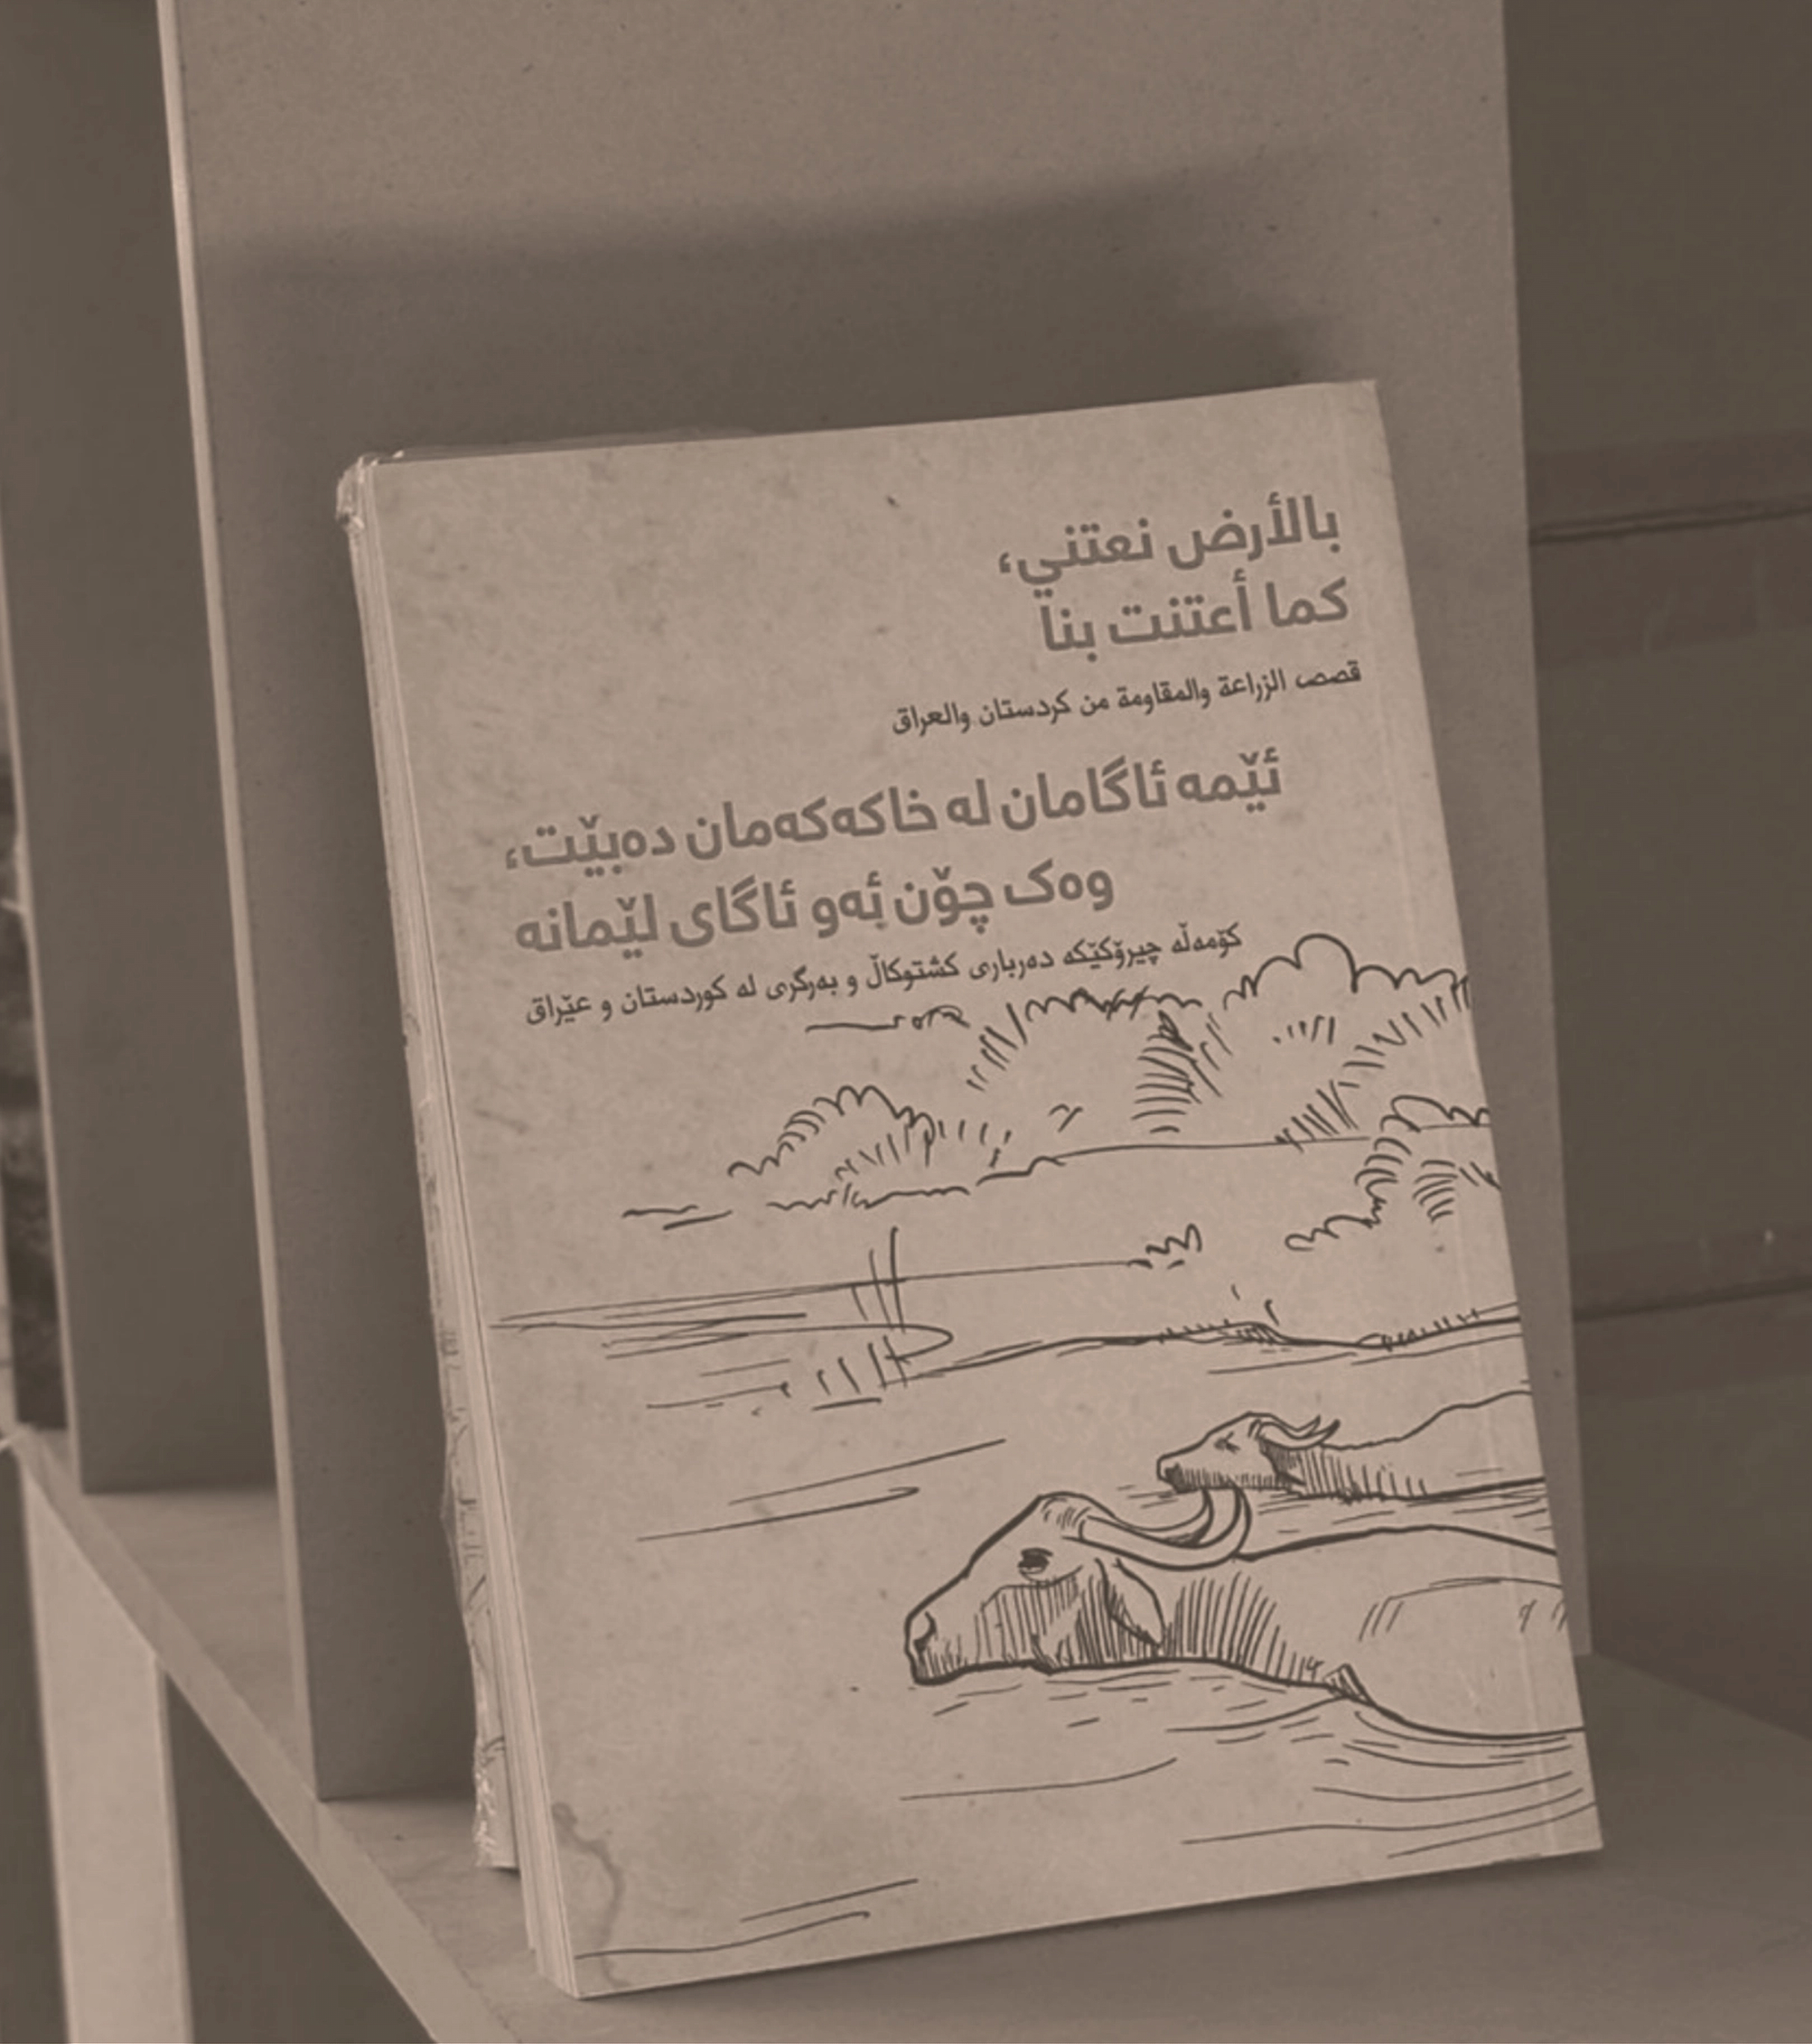 بالأرض نعتني،
كما أعتنت بنا
قصص الزراعة والمقاومة من كردستان والعراق
ئێمە ئاگامان لە خاکەکەمان دەبێت،
وەک چۆن ئەو ئاگای لێمانە
کۆمەڵە چیرۆکێکە دەربارى کشتوکاڵ و بەرگرى لە کوردستان و عێراق